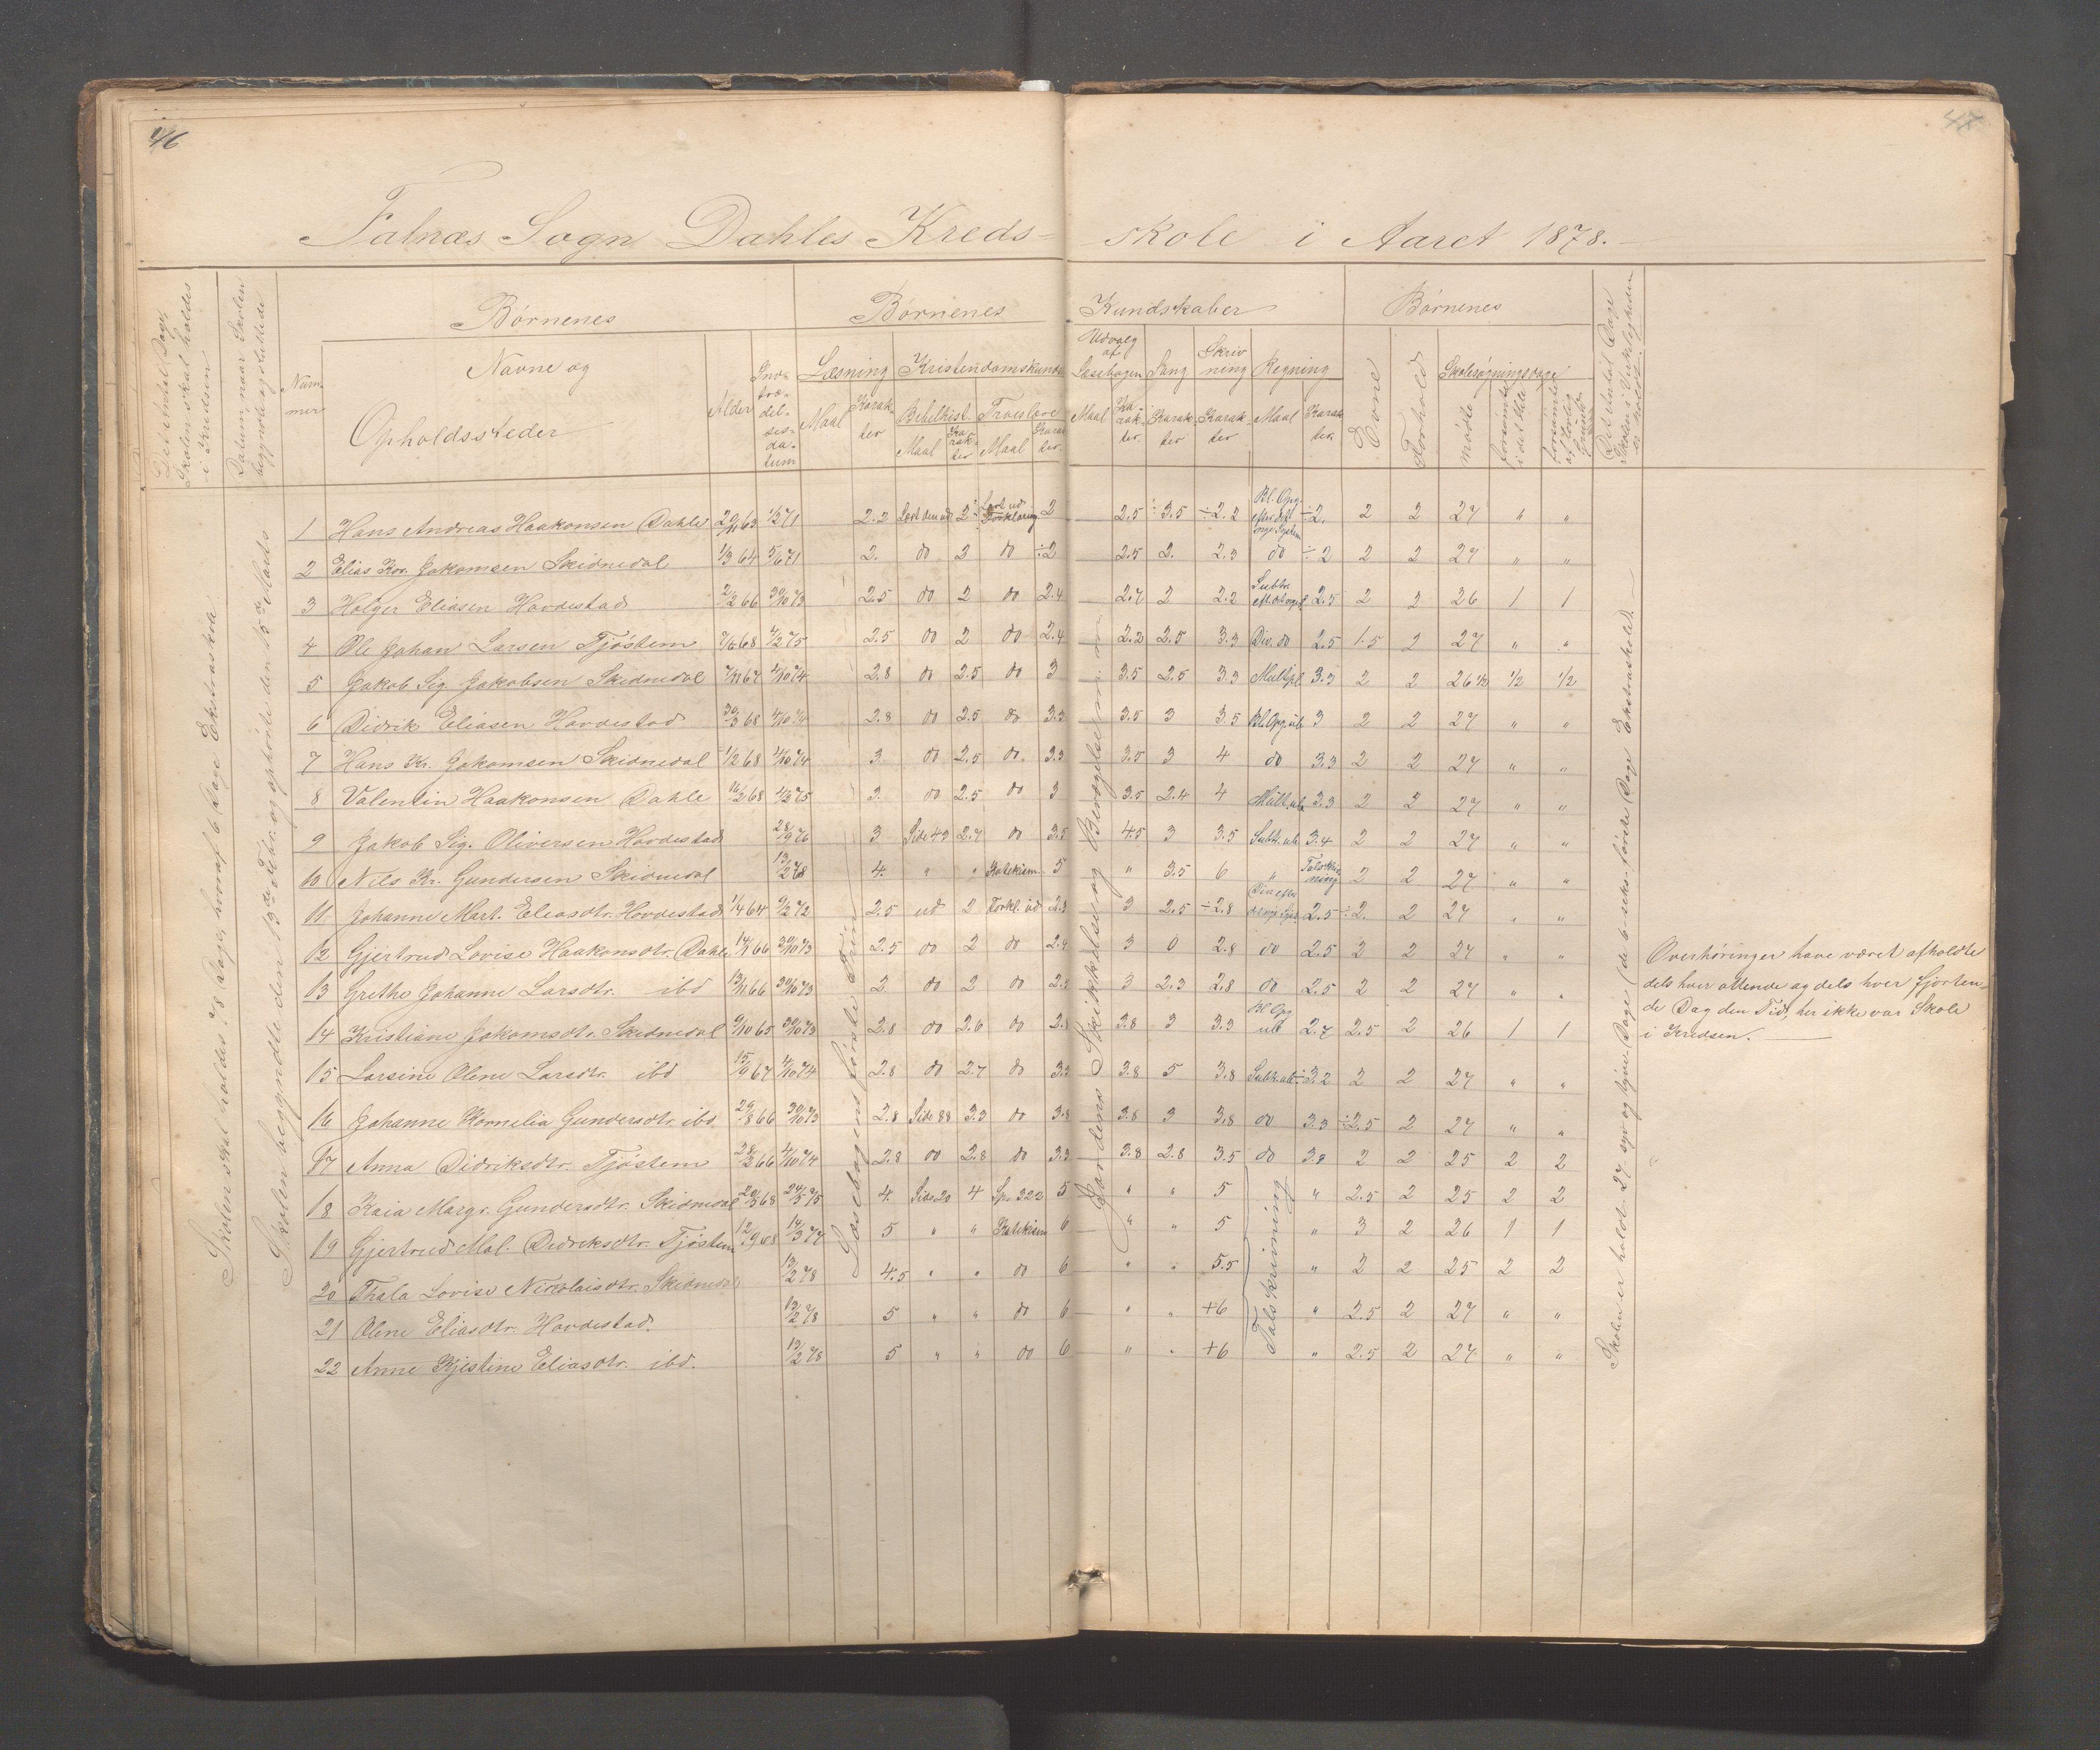 46
47
Falnæs Sogn Dahles Kreds-
skole i Aaret 1878.
Det Antal Dage, Skolen skal holdes i Kredsen
Datum, naar Skolen begyndte og sluttede
Num-
mer
Børnenes
Navne og
Opholdssteder
Alder
Ind-
træ-
del-
ses-
da-
tum
Børnenes
Kundskaber
Læsning
Maal
Karak-
ter
Kristendomskundsk
Bibelhist.
Maal
Ka-
rak-
ter
Troeslære
Maal
Karak
ter.
Udvalg
af
Læsebogen
Maal
Ka-
rak-
ter.
Sang
Karak-
ter
Skriv
ning
Karak-
ter
Regning
Maal
Karak
ter.
Børnenes
Evne
Forhold
Skolesøgningsdage
mødte
forsømte i det Hele
forsømte af lovlig Grund
Det Antal Dage Skolen i Virkeligheden er holdt
Skolen skal holdes 28 Dage, hvoraf 6 Dage Ekstraskole
Skolen begyndte den 13de Febr. og ophørte den 15de Marts
Læsebogens første Trin
Jordens Skikkelse og Bevægelse m. m.
Skolen er holdt 27 syv og tyve Dage (de 6 seks første Dage Ekstraskole).
1 Hans Andreas Haakonsen Dahle 20/11 63 1/2 71 2.2 Læst den ud 2 Læst ud Forklaring 2 2.5 ÷3.5 ÷2.2 Bl. Opg. efter det nye System ÷2. 2 2 27 " "
2 Elias Kor. Jakomsen Skidnedal 1/3 64 5/6 71 2. do 2 do ÷2 2.5 2. 2.3 do ÷2 2 2 27 " "
3 Holger Eliasen Hovdestad 2/2 66 30/10 73 2.5 do 2 do 2.4 2.7 2 2.2 Subtr. 2.5 2 2 26 1 1
4 Ole Johan Larsen Tjøstem 7/6 68 4/2 75 2.5 do 2 do 2.4 2.2 2.5 3.3 Div. do 2.5 1.5 2 27 " "
5 Jakob Sig. Jakobsen Skidnedal 7/11 67 4/10 74 2.8 do 2.5 do 3 3.5 2.5 3.3 Multpl 3.3 2 2 26 1/2 1/2 1/2
6 Didrik Eliasen Hovdestad 30/3 68 4/10 74 2.8 do 2.5 do 3.3 3.5 3 3.5 Bl. Opg. ub 3 2 2 27 " "
7 Hans Kr. Jakomsen Skidnedal 1/2 68 4/10 74 3. do 2.5 do. 3.3 3.5 3 4 do 3.3 2 2 27 " "
8 Valentin Haakonsen Dahle 16/2 68 4/2 75 3. do 2.5 do 3 3.5 2.4 4 Mult. ub 3.3 2 2 27 " "
9 Jakob Sig. Oliversen Hovdestad 28/9 76 3 Side 43 2.7 do 3.5 4.5 3 3.5 Subt. ub 3.4 2 2 27 " "
10 Nils Kr. Gundersen Skidnedal 13/2 78 4. " " Katekism. 5 " 3.5 6 " Talskriv ning 2 2 27 " "
11 Johanne Mart. Eliasdtr. Hovdestad 1/4 64 9/2 72 2.5 ud 2 Forkl. ud 2.3 3 2.5 ÷2.8 2.5 ÷2. 2 27 " "
12 Gjertrud Lovise Haakonsdtr. Dahle 14/1 66 30/10 73 2.5 do 2 do 2.4 3 0 2.8 do 2.5 2 2 27 " "
13 Grethe Johanne Larsdtr. ibd 13/11 66 30/10 73 2 do 2 do 2.3 3 2.3 2.8 do 2.5 2 2 27 " "
14 Kristiane Jakomsdtr. Skidnedal 9/10 65 30/10 73 2.8 do 2.6 do 2.8 3.8 3 3.3 Bl. Opg ub 2.7 2.5 2 26 1 1
15 Larsine Oline Larsdtr. ibd 15/9 67 4/10 74 2.8 do 2.7 do 3.3 3.8 5 3.8 Subt. ub 3.2 2 2 27 " "
16 Johanne Kornelia Gundersdtr. ibd 29/8 66 30/10 73 2.8 Side 88 3.3 do 3.8 3.8 3 3.8 do 3.3 ÷2.5 2 27 " "
17 Anna Didriksdtr. Tjøstem 28/2 66 4/10 74 2.8 do 2.8 do 3.3 3.8 2.8 3.5 do 3.8 2 2 25 2 2
18 Kaia Margr. Gundersdtr. Skidnedal 20/3 68 24/5 75 4. Side 20 4 Sps 322 5 " " 5 " 2.5 2 25 2 2
19 Gjertrud Mal. Didriksdtr. Tjøstem 12/9 68 14/3 77 5 " " Katekism 6 " " 5 " 3 2 26 1 1
20 Thala Lovise Nikolaisdtr. Skidnedal 13/2 78 4.5 " " do 6 " " 5.5 " 2 2 25 2 2
21 Oline Eliasdtr. Hovdestad. 13/2 78 5 " " do 6 " " +6 " 2.5 2 27 " "
22 Anne Kjestine Eliasdtr. ibd. 13/2 78 5 " " do 6 " " +6 " 2.5 2 27 " "
Talskrivning
Overhøringer have været afholdte
dels hver ottende og dels hver fjorten-
de Dag den Tid, her ikke var Skole
i Kredsen.